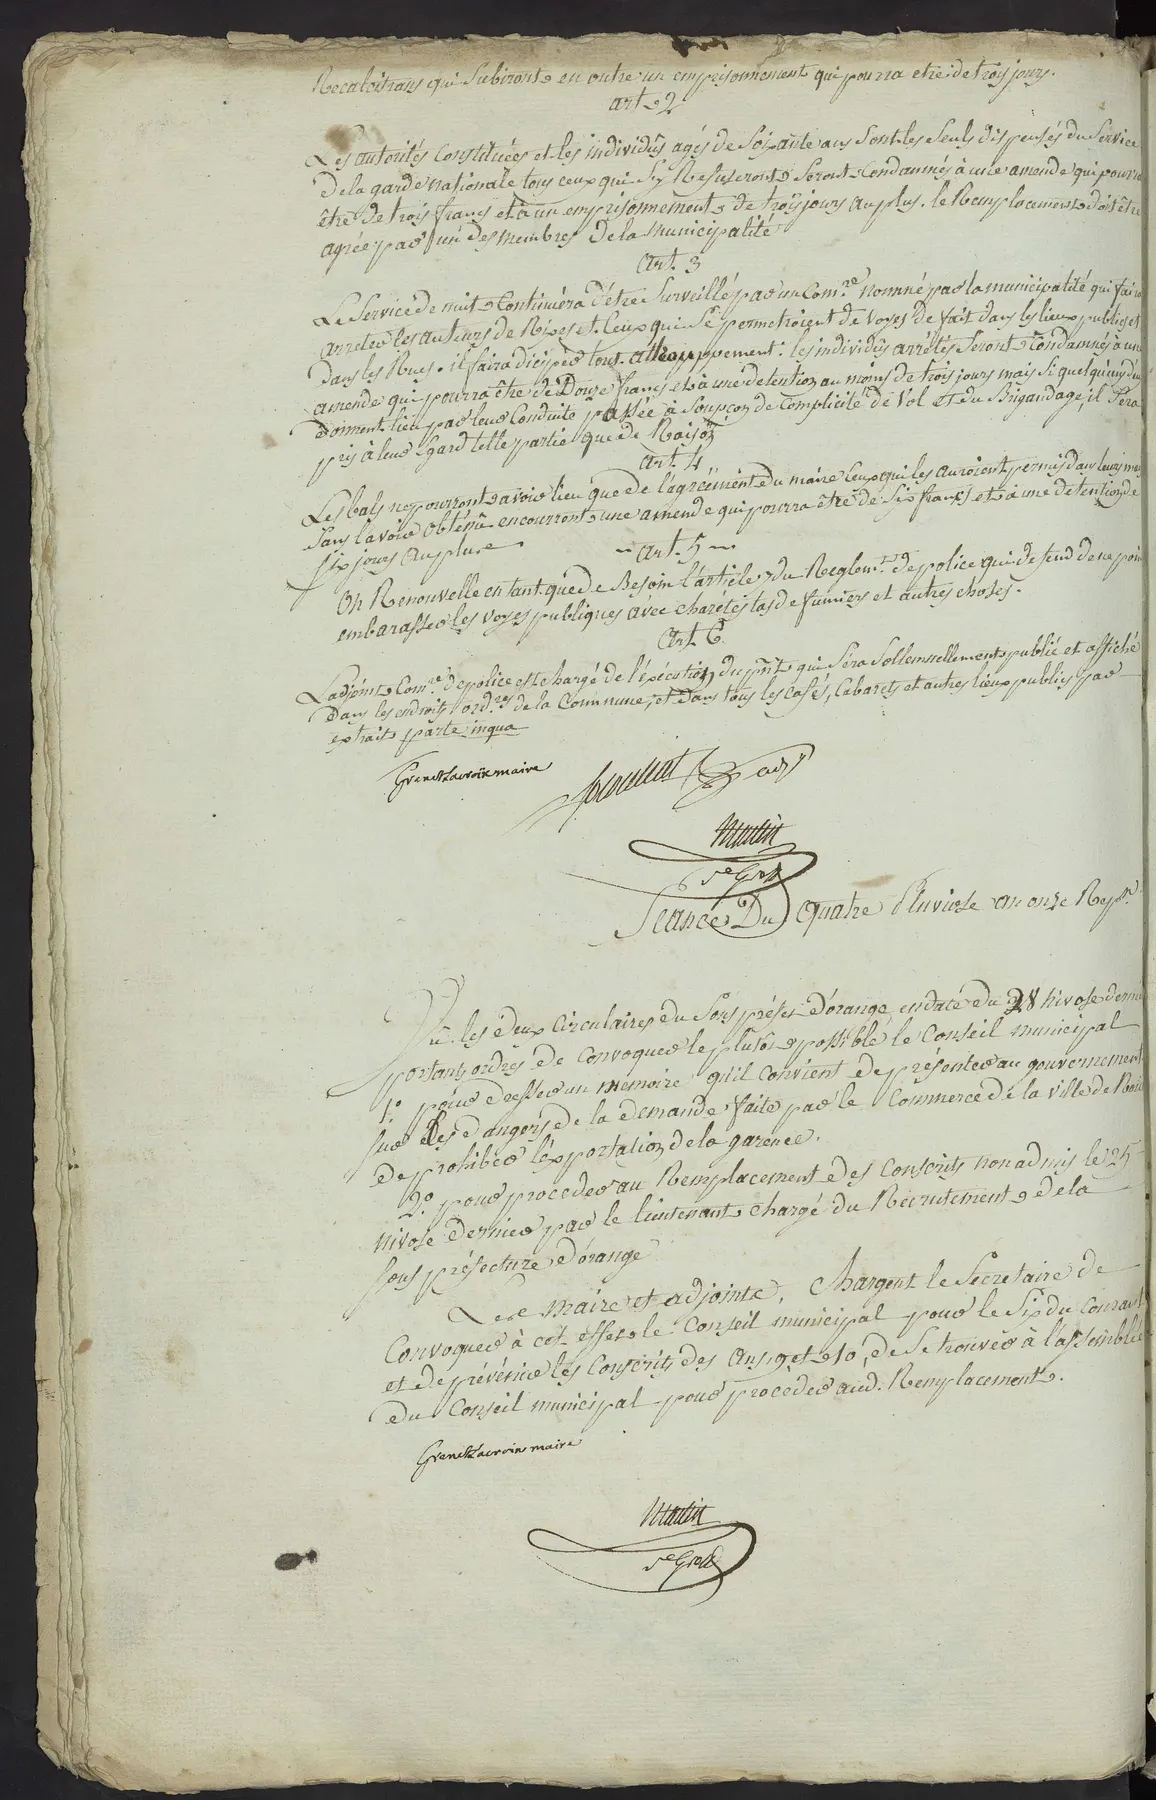 Recalcitrans qui Subiront en outre un emprisonnement qui pourra etre de trois jours.
art. 2
Les autorités Constituées et les individûs agés de Soixante ans Sont les Seuls dispensés du Service
De la garde nationale tous ceux qui S'y Refuseront Seront Condamnés à une amende qui pourra
être de trois francs et à un emprisonnement de trois jours au plus. le Remplacement doit être
agréé par un des membres De la Municipalité
Art. 3
Le Service de nuit Continuera d'être Surveillé par un Com.re nommé par la municipalité qui faira
arreter les auteurs de Rixes et Ceux qui Se permetroient de Voyes de fait dans les lieux publics et
dans les Rues. il faira dicipér tout attrouppement. les individûs arrêtés Seront Condamnés à une
amende qui pourra être de Douze francs et à une detention au moins de trois jours mais Si quelqu'uns d'eux
donnent lieu par leur Conduite passée à Soupçon de Complicité de Vol et du Brigandage, il Sera
pris à leur Egard telle partie que de Raison
Art. 4
Les bals ne pourront avoir lieu que de l'agréement du maire Ceux qui les auroient permis dans leurs
Sans l'avoir obtenû encourront une amende qui pourra être de Six francs et à une detention de
Six jours au plus
Art. 5
On Renouvelle en tant que de Besoin l'article du Reglem.t de police qui defend de ne point
embarasser les voyes publiques avec charétes tas de fumiers et autres choses.
Art. 6
L'adjoint Com.re de police est chargé de l'éxécution du p.nt qui Sera Sollemnellement publié et affiché
Dans les endroits ord.res de la Commune, et dans tous les cafés, Cabarets et autres lieux publics par
extrait parte in qua
maire
Martin
Séance Du Quatre Pluviose an onze Rep.n
Vû les deux Circulaires du Sous préfet d'orange en daté du 28 nivose dernier
portants ordres de Convoquer le plutôt possible le Conseil municipal
1.o pour dresser un mémoire qu'il convient de présenter au gouvernement
Sur Les dangers de la demande faite par le Commerce de la Ville de
de prohiber l'éxportation de la garence.
2.o pour proceder au Remplacement des Conscrits non admis le 25
nivose dernier par le lieutenant chargé du Recrutement de la
Sous préfecture d'orange
Les maire et adjoints, Chargent le Secretaire de
Convoquer à cet effet le Conseil municipal pour le Six du Courant
et de prévénir les Conscrits des ans 9 et 10, de Se trouver à l'assemblée
du Conseil municipal pour proceder aud. Remplacement.
maire
Martin